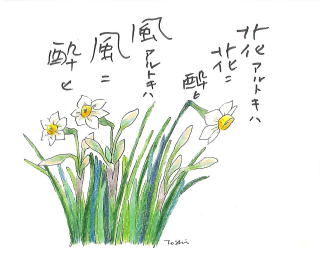 花アルトキハ
花ニ
酔ヒ
風アルトキハ
風ニ
酔ヒ
Toshi